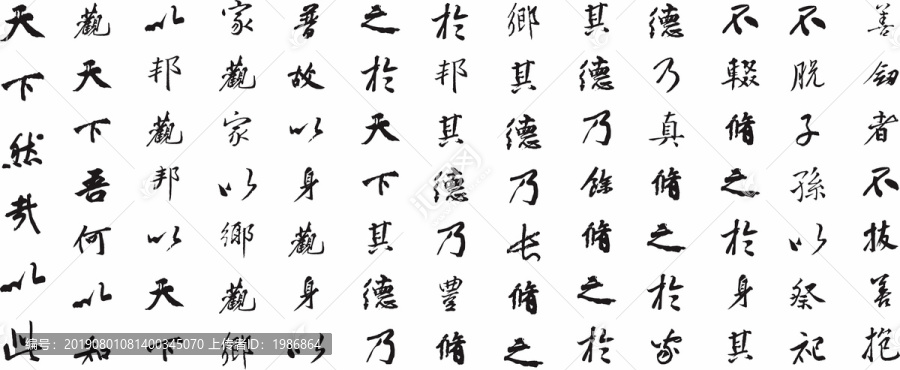 善釼者不拔善抱
不脱子孫以祭祀
不輟脩之於身其
德乃真脩之於家
其德乃餘脩之於
鄉其德乃長脩之
於邦其德乃豐脩
之於天下其德乃
普故以身觀身以
家觀家以鄉觀鄉
以邦觀邦以天下
觀天下吾何以知
天下然哉以此
编号：20190801081400345070 上传者ID：1986864